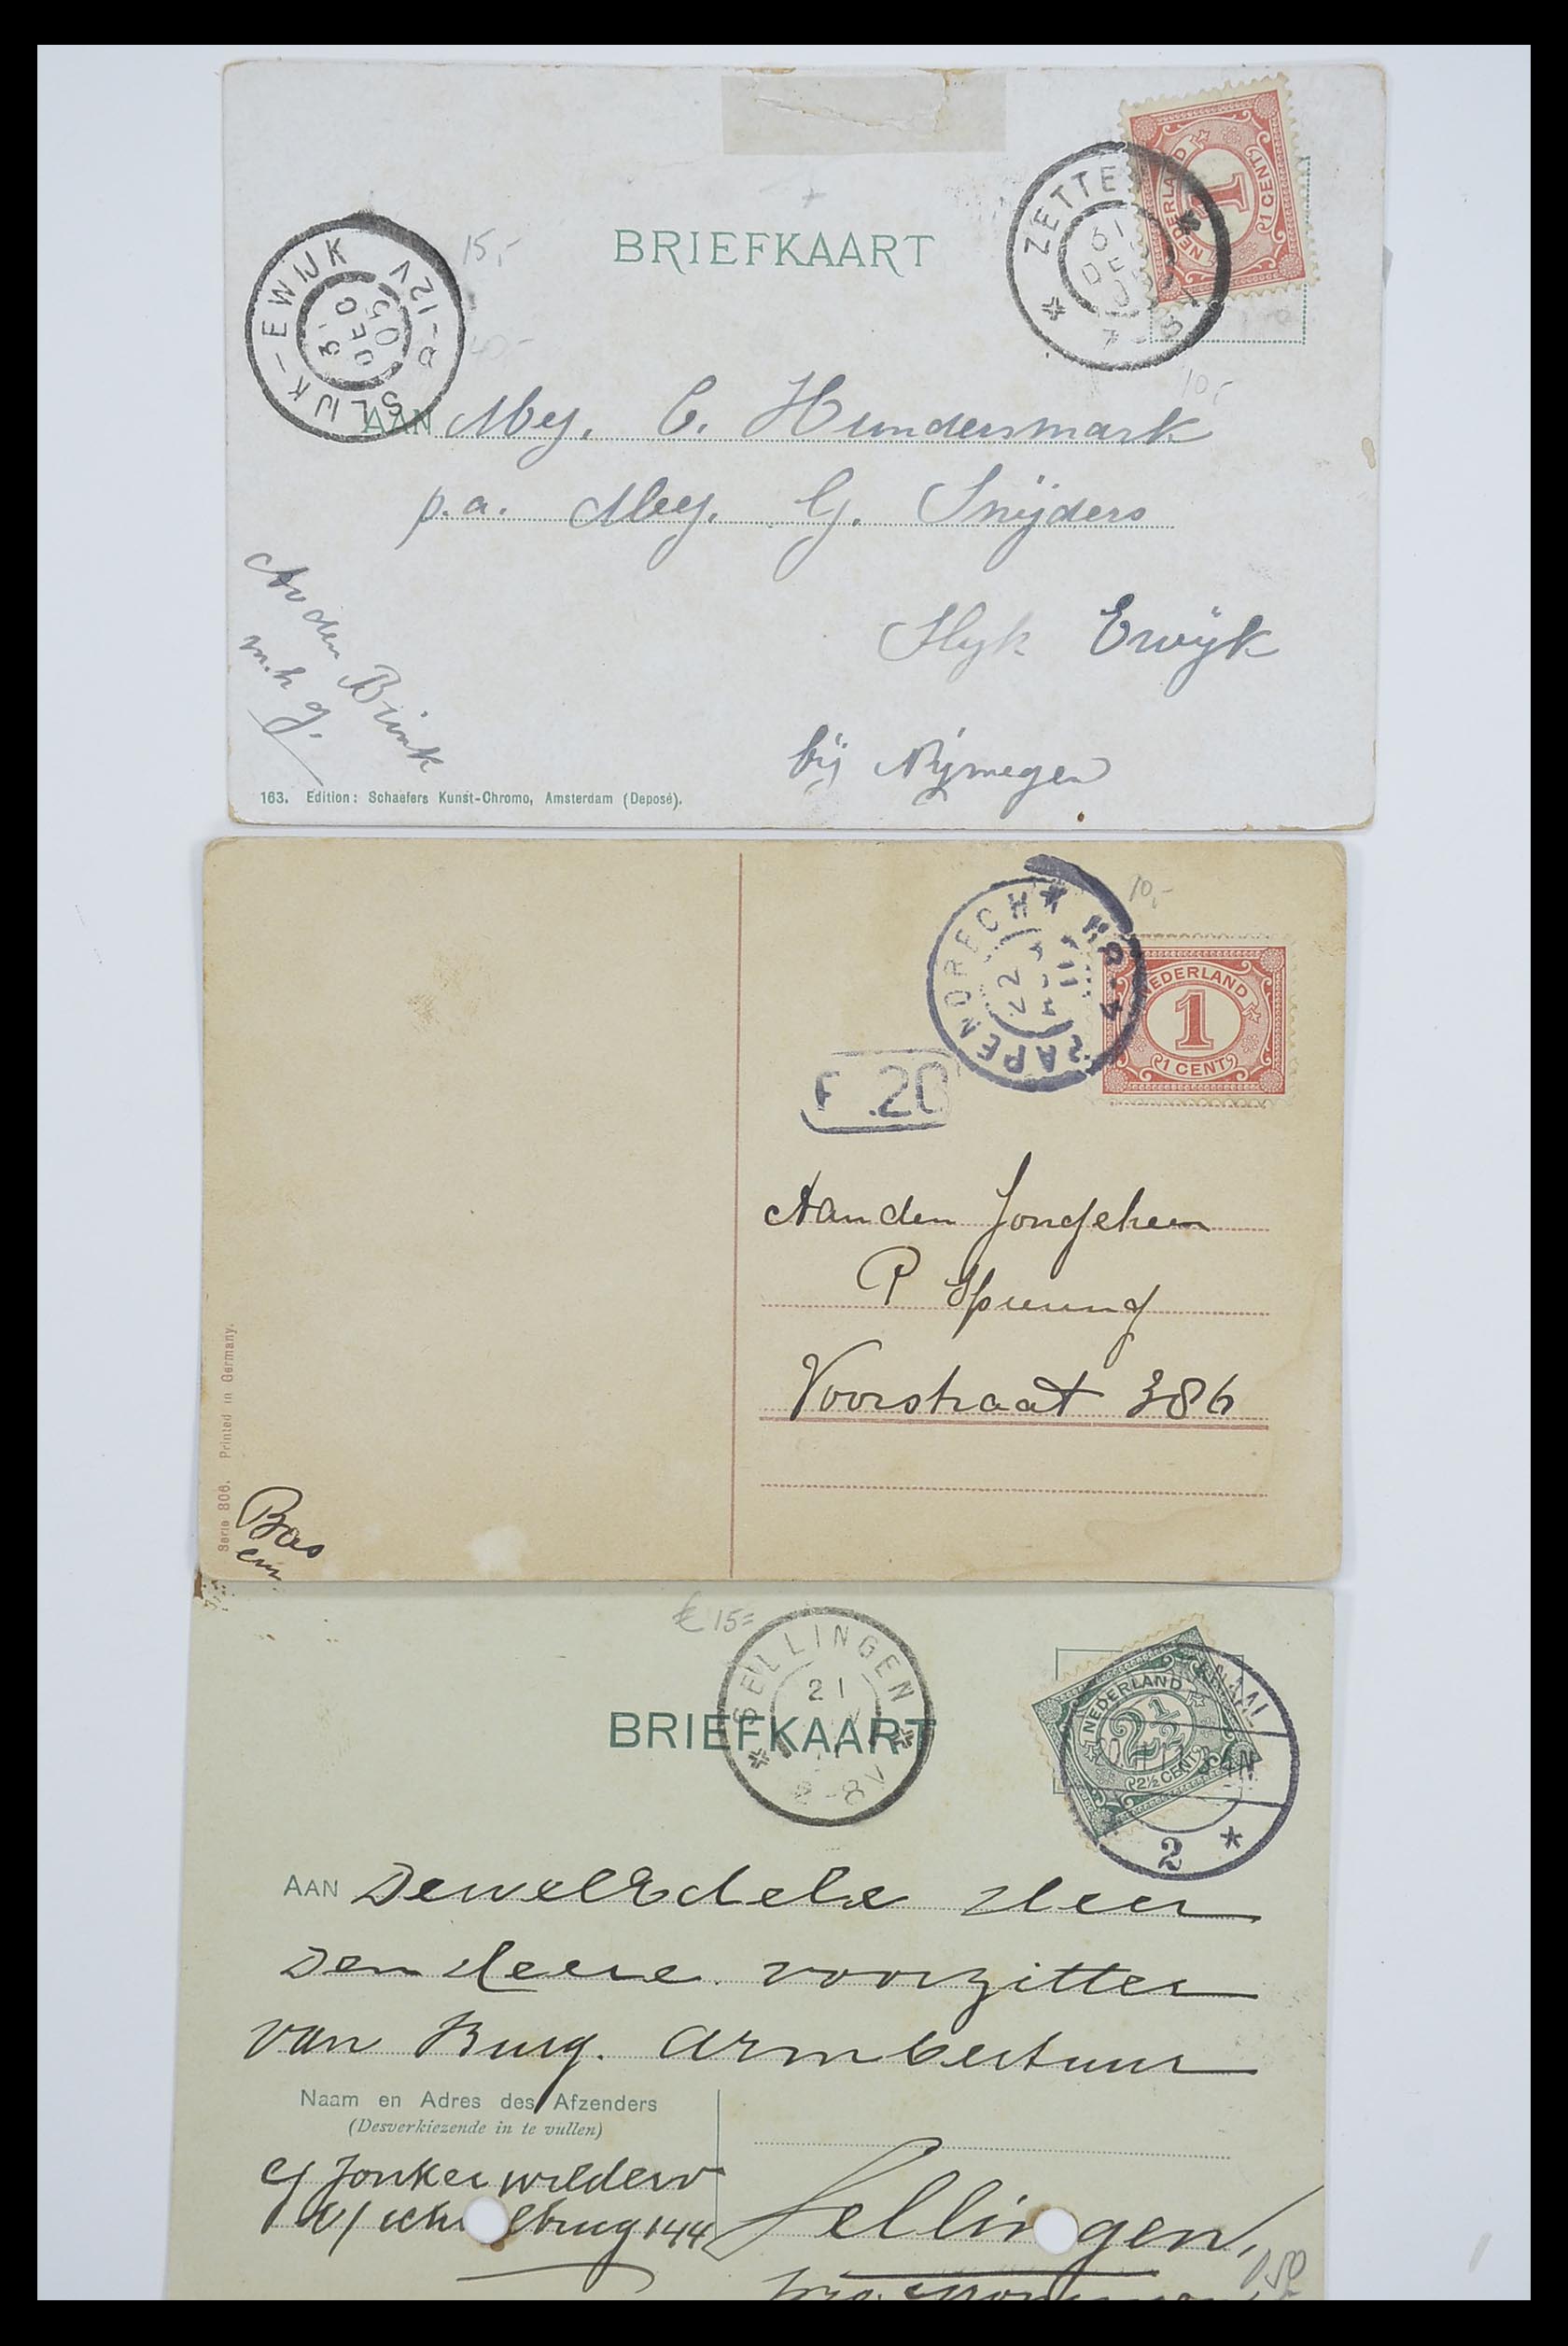 15,-
BRIEFKAART
ZETTE
NEDERLAND
1
1 CENT
SLIJK-EWIJK
8-12V
DEC
05
10,-
AAN Mej. C. Hundersmark
p.a. Mej. G. Snijders
Slyk Ewijk
bij Nijmegen
den Brink
m.h g.
163. Edition: Schaefers Kunst-Chromo, Amsterdam (Deposé).
10,-
PAPENDRECHT
22
11
NEDERLAND
1
1 CENT
F .20
Aan den Jongeheer
P
Voorstraat 386
Serie 806. Printed in Germany.
Bas
€ 15=
SELLINGEN
21
-8V
BRIEFKAART
NEDERLAND
2½
2½ CENT
2 *
AAN DewelEdele Heer
Den Heere voorzitter
van Burg. Armbestuur
Naam en Adres des Afzenders
(Desverkiezende in te vullen)
Jonker
144
Sellingen,